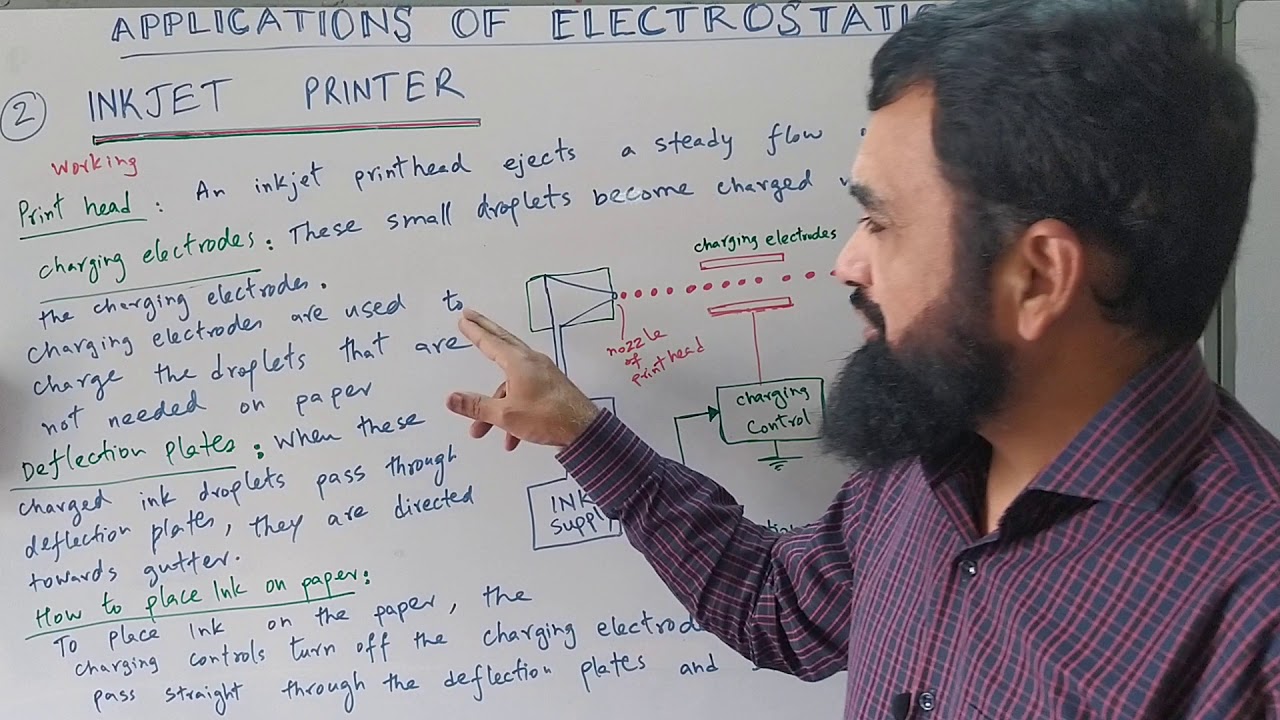 APPLICATIONS OF ELECTROSTATIC
2 INKJET PRINTER
Working
Print head : An inkjet printhead ejects a steady flow
Charging electrodes : These small droplets become charged
the charging electrodes.
Charging electrodes are used to
charge the droplets that are
not needed on paper
Deflection plates : When these
charged ink droplets pass through
deflection plates, they are directed
towards gutter.
How to place Ink on paper :
To place Ink on the paper, the
charging controls turn off the charging
pass straight through the deflection plates and
charging electrodes
nozzle
of
printhead
charging
Control
INK
SUPPLY